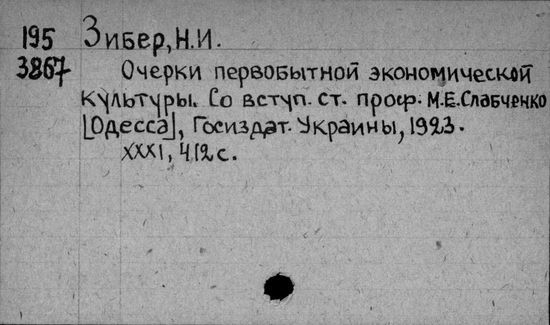 195 Зибер, Н.И.
3867
Очерки первобытной экономической
культуры. Со вступ. ст. проф. М.Е.Слабченко
[Одесса], Госиздат. Украины, 1923.
XXXI, 412 с.